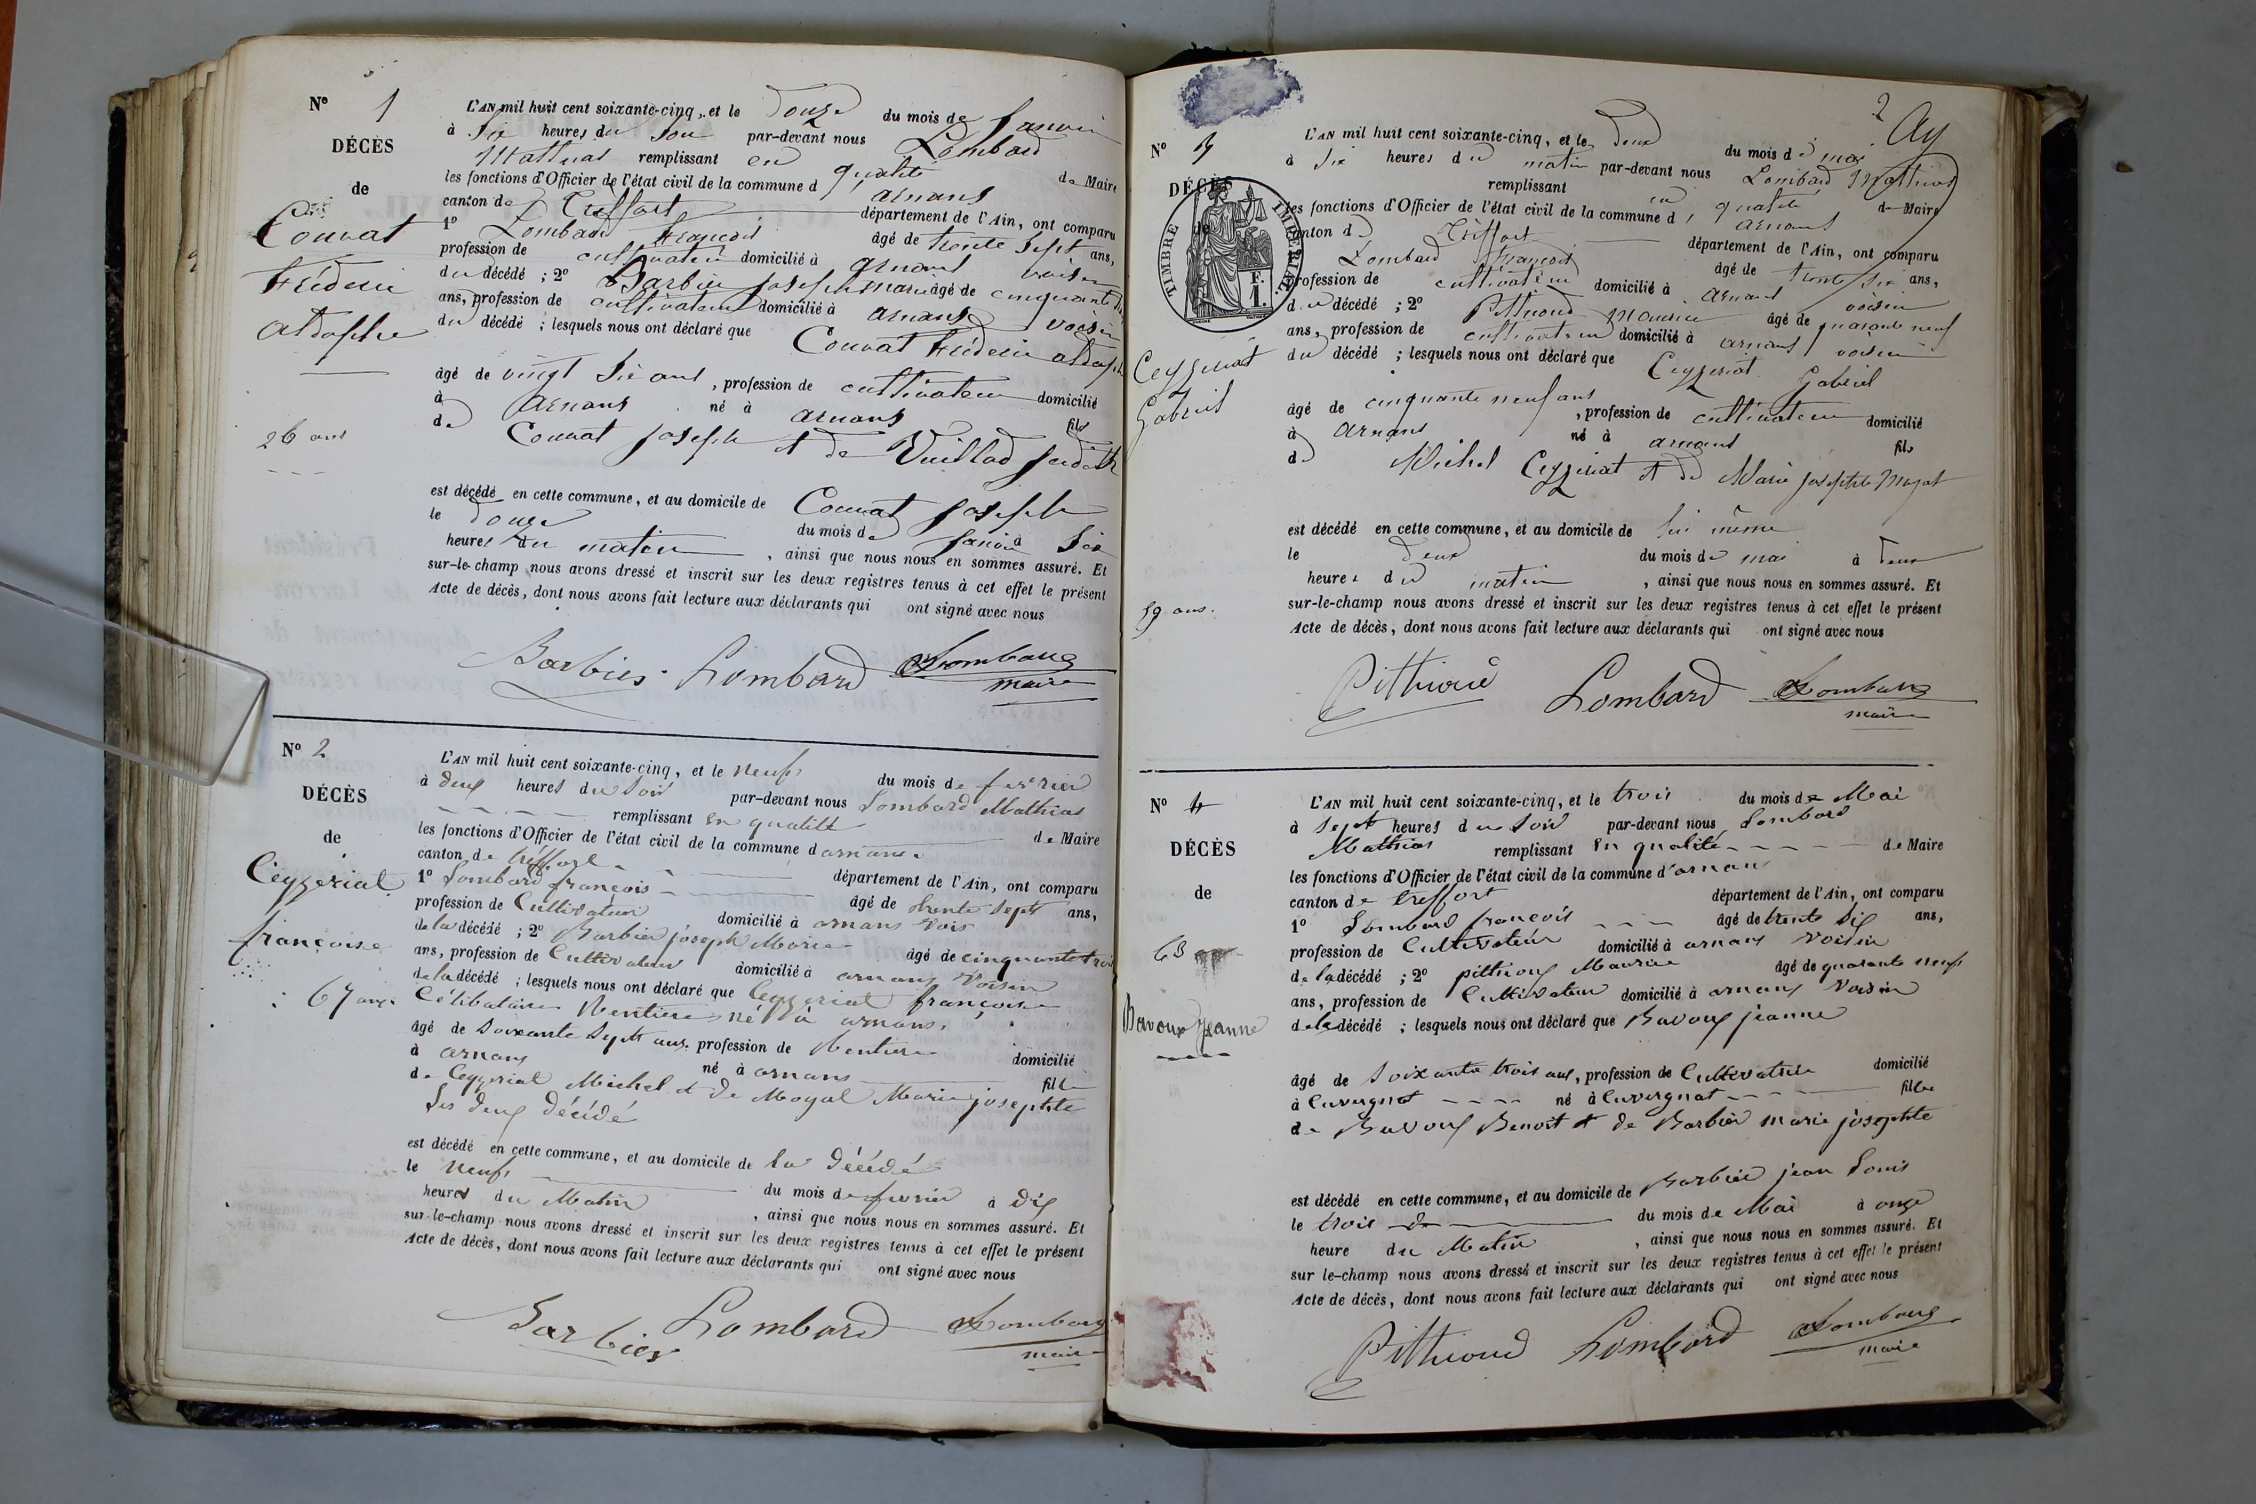 N° 1
DÉCÈS
de
Convat
Frédéric
adolphe
26 ans
L'AN mil huit cent soixante-cinq, et le Douze du mois de Janvier
à Six heures du Soir par-devant nous Lombard
Mathias remplissant en qualité de Maire
les fonctions d'Officier de l'état civil de la commune d'arnans
canton de Treffort département de l'Ain, ont comparu
1° Lombard François âgé de trente Sept ans,
profession de cultivateur domicilié à arnans voisin
du décédé ; 2° Barbier joseph marie âgé de cinquante
ans, profession de cultivateur domicilié à arnans voisin
du décédé ; lesquels nous ont déclaré que Convat Frédéric adolphe
âgé de vingt Six ans, profession de cultivateur domicilié
à arnans né à arnans fils
de Convat joseph et de Vuillod
est décédé en cette commune, et au domicile de Convat joseph
le douze du mois de janvier à Six
heures du matin, ainsi que nous nous en sommes assuré. Et
sur-le-champ nous avons dressé et inscrit sur les deux registres tenus à cet effet le présent
Acte de décès, dont nous avons fait lecture aux déclarants qui ont signé avec nous
Barbier Lombard Lombard
maire
N° 2
DÉCÈS
de
Ceyzeriat
françoise
67 ans
L'AN mil huit cent soixante-cinq, et le neuf du mois de fevrier
à deux heures du Soir par-devant nous Lombard Mathias
remplissant en qualité de Maire
les fonctions d'Officier de l'état civil de la commune d'arnans
canton de treffort département de l'Ain, ont comparu
1° Lombard françois âgé de trente Sept ans,
profession de Cultivateur domicilié à arnans vois
de la décédé ; 2° Barbier joseph Marie âgé de cinquante trois
ans, profession de Cultivateur domicilié à arnans Voisin
de la décédé ; lesquels nous ont déclaré que Ceyzeriat françoise
Célibataire Rentiere né à arnans
âgé de Soixante Sept ans, profession de Rentiere domicilié
à arnans né à arnans fille
de Ceyzeriat Michel et de Moyal Marie josephte
Les deux décédé
est décédé en cette commune, et au domicile de la décédé
le neuf du mois de fevrier à dix
heures du Matin, ainsi que nous nous en sommes assuré. Et
sur-le-champ nous avons dressé et inscrit sur les deux registres tenus à cet effet le présent
Acte de décès, dont nous avons fait lecture aux déclarants qui ont signé avec nous
Barbier Lombard Lombard
maire
2
N° 3
DÉCÈS
de
TIMBRE IMPÉRIAL
F.
1.
Ceyzeriat
Gabriel
59 ans.
L'AN mil huit cent soixante-cinq, et le deux du mois de mai
à Six heures du matin par-devant nous Lombard Mathias
remplissant en qualité de Maire
les fonctions d'Officier de l'état civil de la commune d'arnans
canton de Treffort département de l'Ain, ont comparu
Lombard François âgé de trente Six ans,
profession de cultivateur domicilié à arnans voisin
du décédé ; 2° Pithioud Maurice âgé de quarante neuf
ans, profession de cultivateur domicilié à arnans voisin
du décédé ; lesquels nous ont déclaré que Ceyzeriat Gabriel
âgé de cinquante neuf ans, profession de cultivateur domicilié
à arnans né à arnans fils
de Michel Ceyzeriat et de Marie josephte
est décédé en cette commune, et au domicile de lui même
le deux du mois de mai à deux
heures du matin, ainsi que nous nous en sommes assuré. Et
sur-le-champ nous avons dressé et inscrit sur les deux registres tenus à cet effet le présent
Acte de décès, dont nous avons fait lecture aux déclarants qui ont signé avec nous
Pithioud Lombard Lombard
maire
N° 4
DÉCÈS
de
63
Bavoux Jeanne
L'AN mil huit cent soixante-cinq, et le trois du mois de Mai
à Sept heures du Soir par-devant nous Lombard
Mathias remplissant en qualité de Maire
les fonctions d'Officier de l'état civil de la commune d'arnans
canton de treffort département de l'Ain, ont comparu
1° Lombard françois âgé de trente Six ans,
profession de Cultivateur domicilié à arnans Voisin
de la décédé ; 2° pithioux Maurice âgé de quarante neuf
ans, profession de Cultivateur domicilié à arnans Voisin
de la décédé ; lesquels nous ont déclaré que Bavoux jeanne
âgé de Soixante trois ans, profession de Cultivatrice domicilié
à Cuvergnat né à Cuvergnat fille
de Bavoux Benoit et de Barbier marie josephte
est décédé en cette commune, et au domicile de Barbier jean Louis
le trois du mois de Mai à onze
heure du Matin, ainsi que nous nous en sommes assuré. Et
sur le-champ nous avons dressé et inscrit sur les deux registres tenus à cet effet le présent
Acte de décès, dont nous avons fait lecture aux déclarants qui ont signé avec nous
Pithioud Lombard Lombard
maire